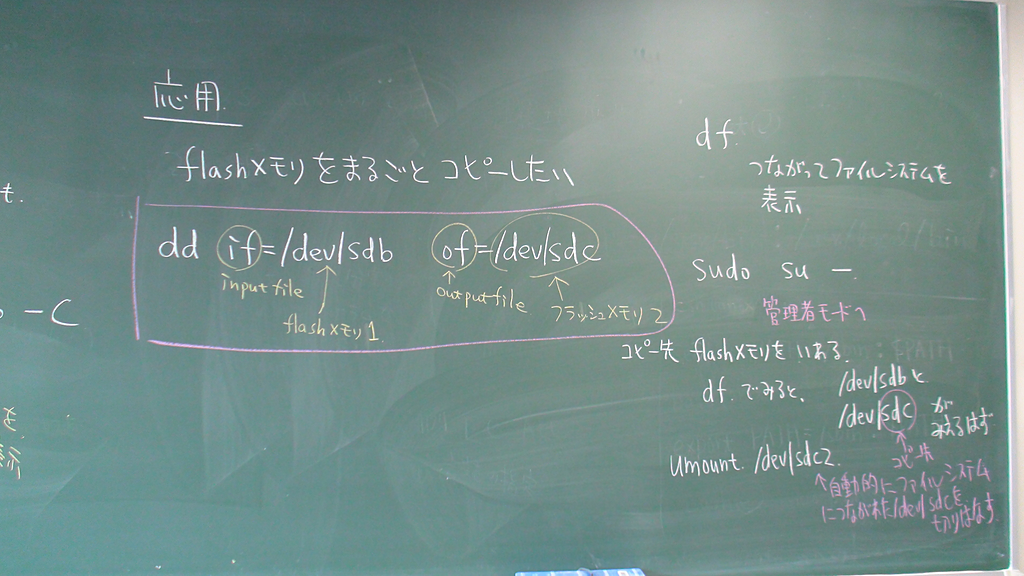 応用
flashメモリをまるごとコピーしたい
dd if=/dev/sdb of=/dev/sdc
input file
output file
flashメモリ1
フラッシュメモリ2
も.
-C
を
示
df.
つながってファイルシステムを
表示
sudo su -
管理者モードへ
コピー先 flashメモリをいれる.
df. でみると、 /dev/sdbと
/dev/sdc が
みえるはず
コピー先
umount /dev/sdc2.
↑自動的にファイルシステム
につながれた/dev/sdcを
切りはなす